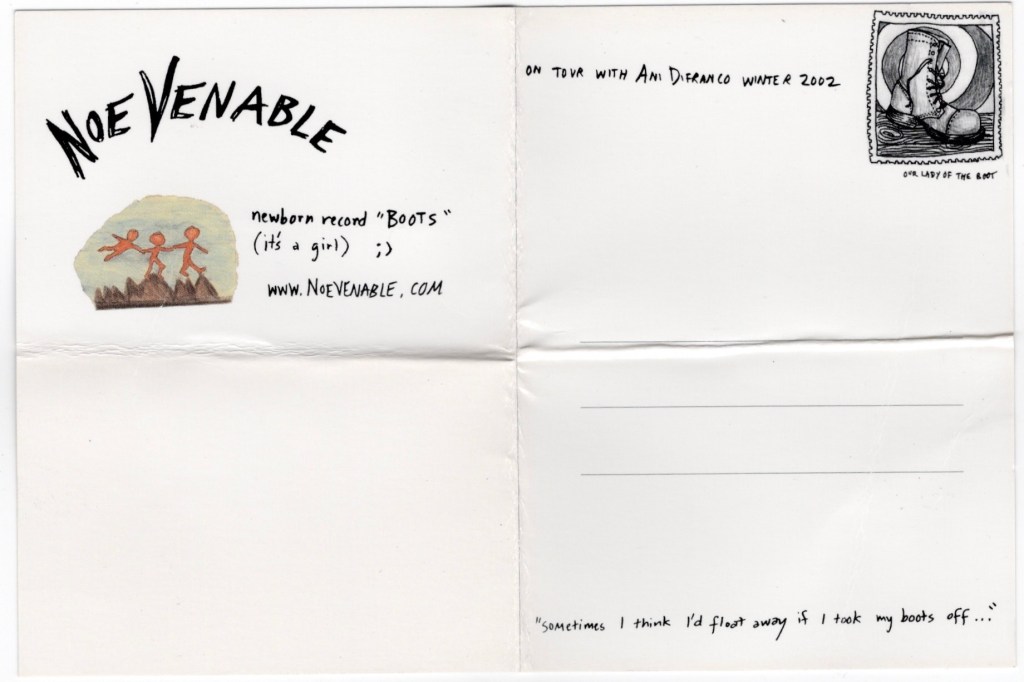 NOE VENABLE
newborn record "BOOTS"
(it's a girl) ;)
WWW.NOEVENABLE.COM
ON TOUR WITH ANI DIFRANCO WINTER 2002
OUR LADY OF THE BOOT
"sometimes I think I'd float away if I took my boots off..."